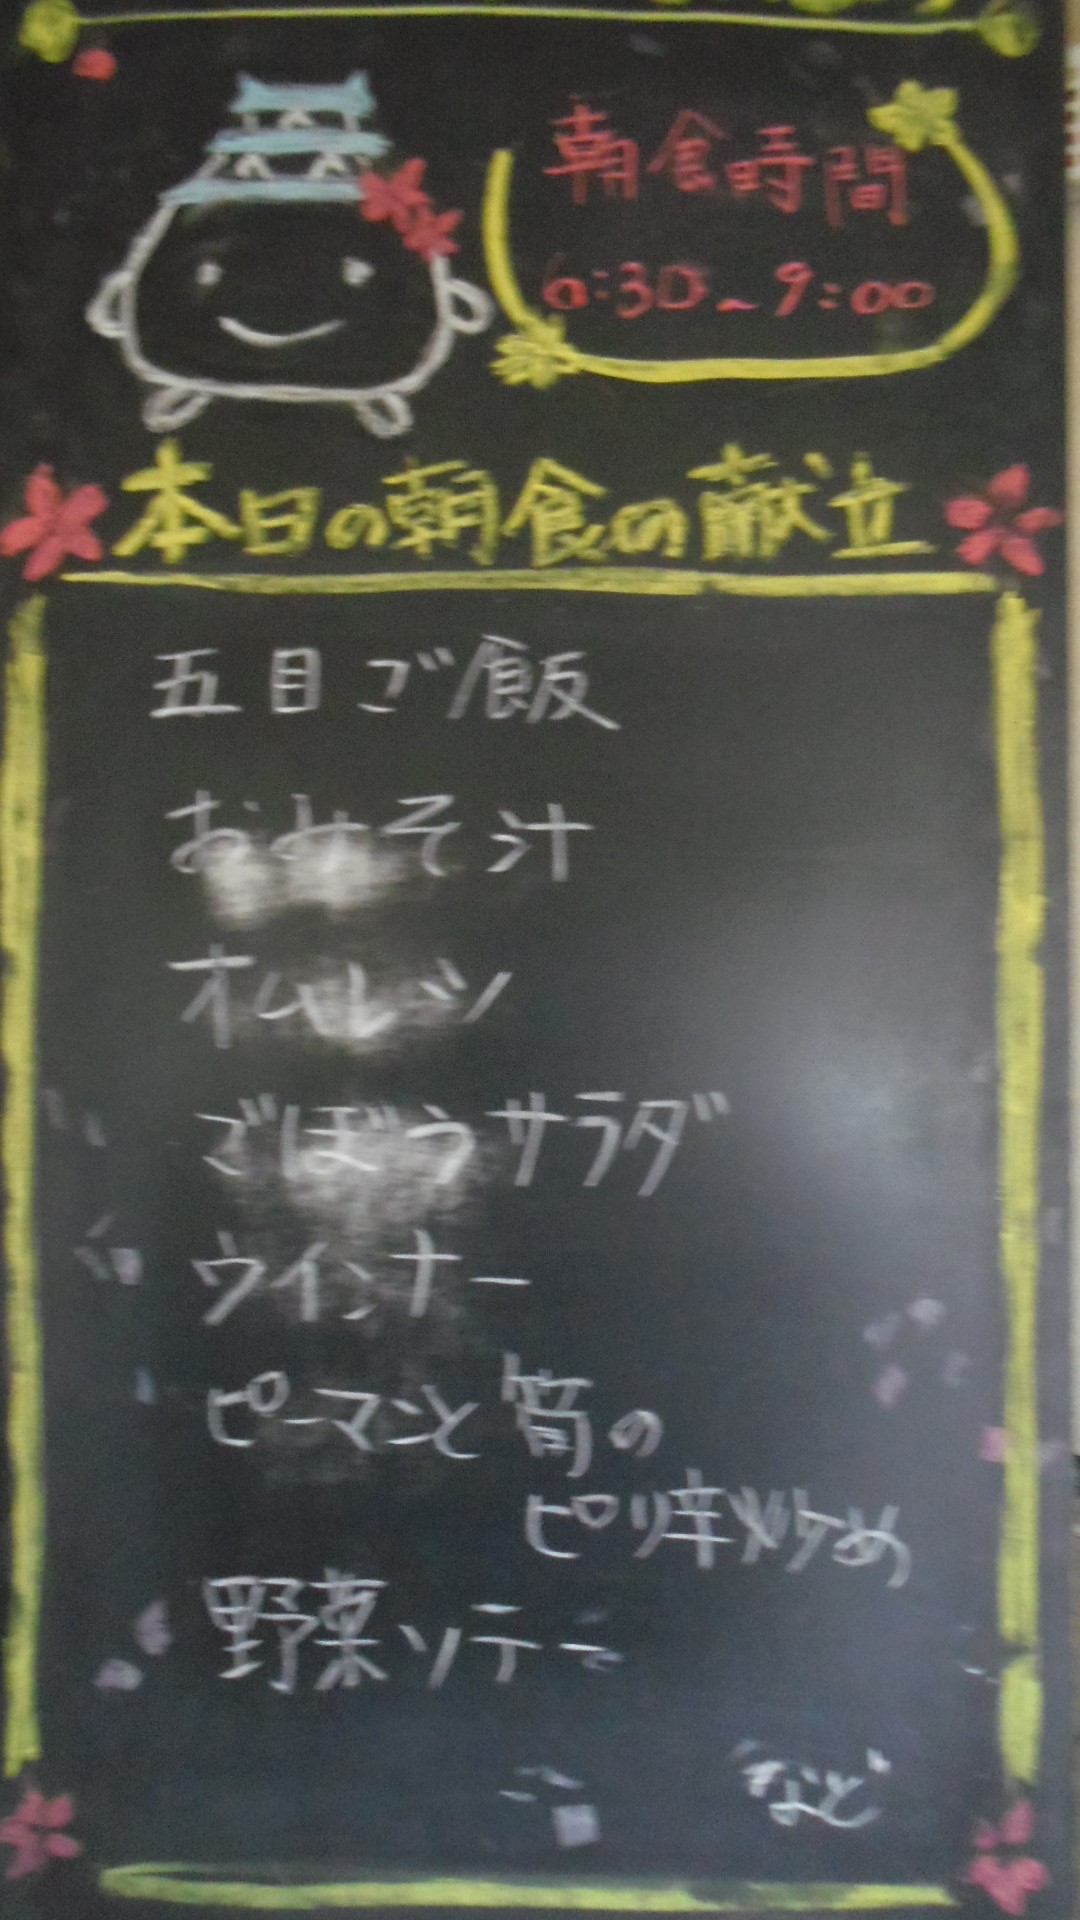 朝食時間
6:30~9:00
本日の朝食の献立
五目ご飯
おみそ汁
オムレツ
ごぼうサラダ
ウインナー
ピーマンと筍の
ピリ辛炒め
野菜ソテー
など